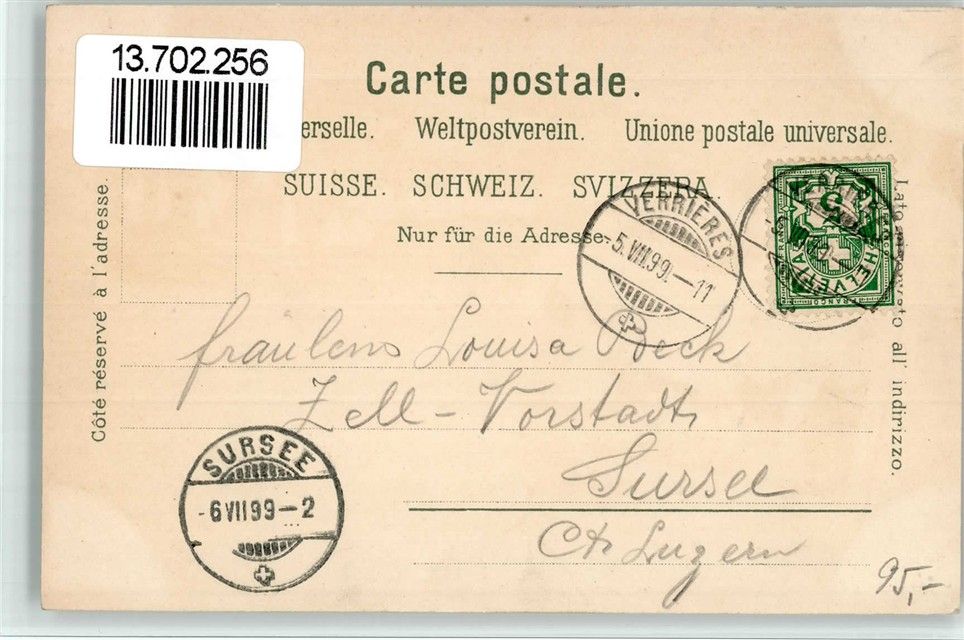 13.702.256
Carte postale.
erselle. Weltpostverein. Unione postale universale.
SUISSE. SCHWEIZ. SVIZZERA.
Nur für die Adresse
Côté réservé à l'adresse.
Lato all' indirizzo.
VERRIÈRES
5.VII.99.-11
5
HELVETIA
FRANCO
fräulens Louisa Beck
Zell-Vorstadt,
Sursee
Ct. Luzern
SURSEE
6 VII 99-2
95,-